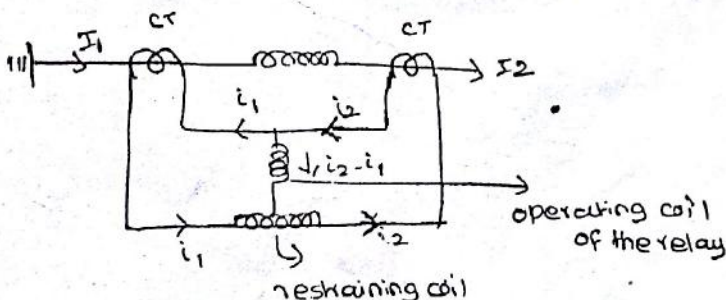 CT
CT
I1
I2
i1
i2
i2-i1
operating coil
of the relay
i1
i2
restraining coil